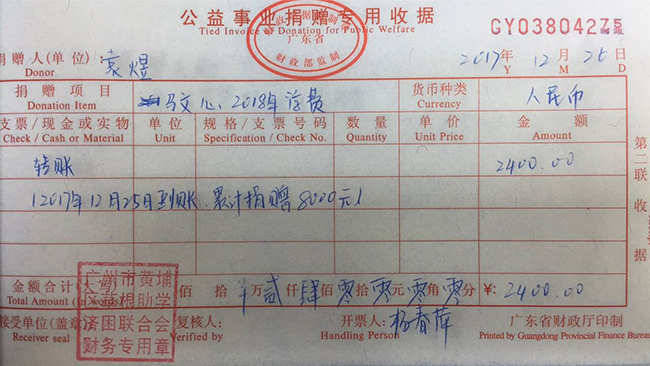 公益事业捐赠专用收据
Tied Invoice of Donation for Public Welfare
GY03804275
广东省
财政部监制
捐赠人(单位) 袁煜
Donor
2017年 12月 26日
Y M D
捐赠项目 2018年学费 货币种类 人民币
Donation Item Currency
支票/现金或实物 单位 规格/支票号码 数量 单价 金额
Check / Cash or Material Unit Specification / Check No. Quantity Unit Price Amount
转账 2400.00
(2017年12月25日到账、累计捐赠8000元)
第二联 收据
金额合计(大写) 佰 拾 万 贰仟 肆佰 零拾 零元 零角 零分 ¥: 2400.00
Total Amount (In words)
广州市黄埔
区草根助学
济困联合会
财务专用章
接受单位(盖章) 复核人: 开票人: 杨春萍 广东省财政厅印制
Receiver seal Verified by Handling Person Printed by Guangdong Provincial Finance Bureau